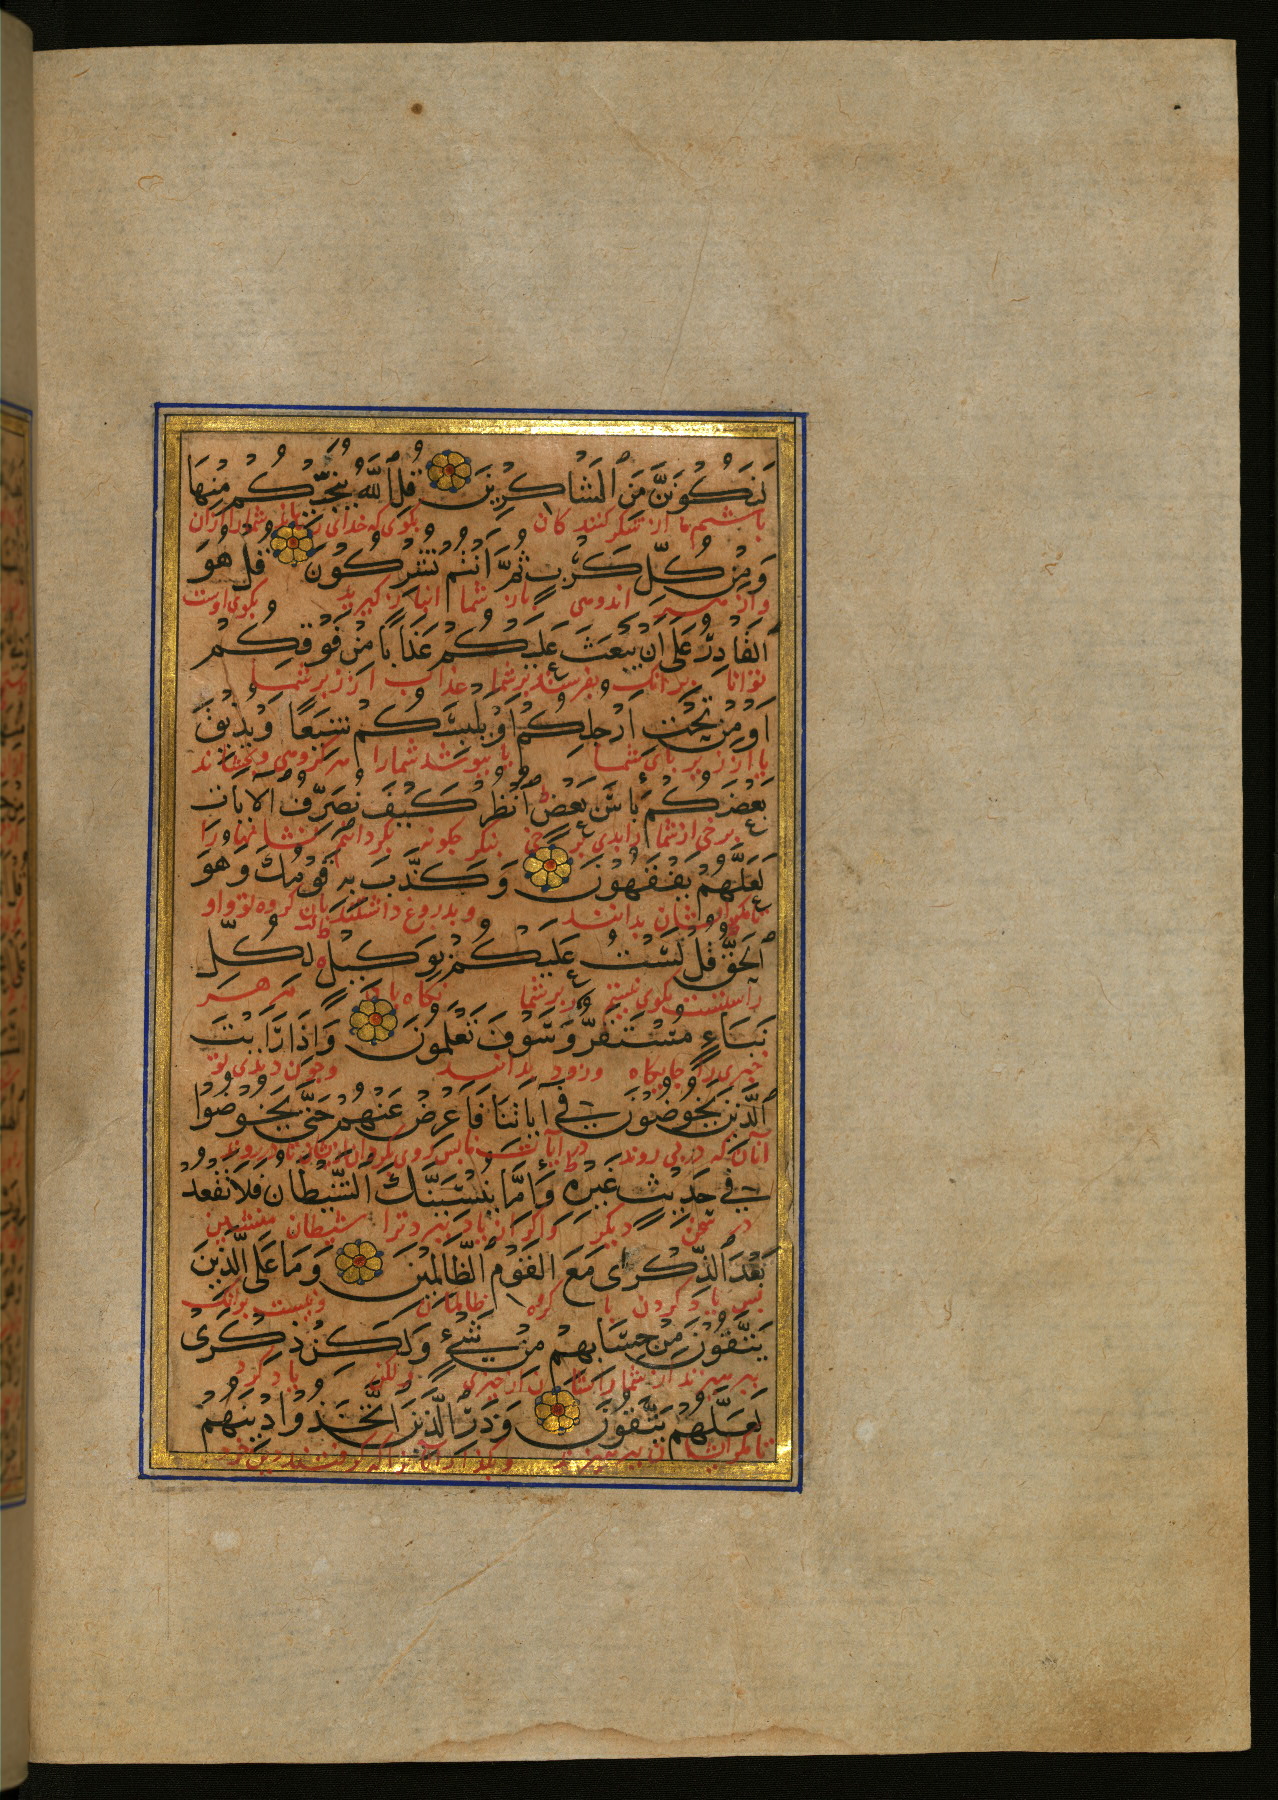 لَنَكُونَنَّ مِنَ ٱلشَّاكِرِينَ قُلِ ٱللَّهُ يُنَجِّيكُمْ مِنْهَا
باشیم ما از شکر کنندکان بکوی که خدای شما را از آن
وَمِنْ كُلِّ كَرْبٍ ثُمَّ أَنْتُمْ تُشْرِكُونَ قُلْ هُوَ
واز هر اندوهی باز شما انباز کیرید بکوی اوست
ٱلْقَادِرُ عَلَى أَنْ يَبْعَثَ عَلَيْكُمْ عَذَابًا مِنْ فَوْقِكُمْ
توانا بر آنک بفرستد بر شما عذاب از زبر شما
أَوْ مِنْ تَحْتِ أَرْجُلِكُمْ أَوْ يَلْبِسَكُمْ شِيَعًا وَيُذِيقَ
یا از زیر پای شما یا بپوشد شمارا هر کروهی وبچشاند
بَعْضَكُمْ بَأْسَ بَعْضٍ ٱنْظُرْ كَيْفَ نُصَرِّفُ ٱلْآيَاتِ
برخی از شما را بدی برخی بنکر چکونه بکردانیم نشانها را
لَعَلَّهُمْ يَفْقَهُونَ وَكَذَّبَ بِهِ قَوْمُكَ وَهُوَ
تا مکر ایشان بدانند وبدروغ داشتند بآن کروه تو واو
ٱلْحَقُّ قُلْ لَسْتُ عَلَيْكُمْ بِوَكِيلٍ لِكُلِّ
راستست بکوی نیستم بر شما نکاه بان مر هر
نَبَاءٍ مُسْتَقَرٌّ وَسَوْفَ تَعْلَمُونَ وَإِذَا رَأَيْتَ
خبری را جایکاه وزود بدانند وچون دیدی تو
ٱلَّذِينَ يَخُوضُونَ فِي آيَاتِنَا فَأَعْرِضْ عَنْهُمْ حَتَّى يَخُوضُوا
آنان که در می روند در آیات ما پس روی بکردان از ایشان تا در روند
فِي حَدِيثٍ غَيْرِهِ وَإِمَّا يُنْسِيَنَّكَ ٱلشَّيْطَانُ فَلَا تَقْعُدْ
در سخن دیکر واکر از یاد ببرد ترا شیطان منشین
بَعْدَ ٱلذِّكْرَى مَعَ ٱلْقَوْمِ ٱلظَّالِمِينَ وَمَا عَلَى ٱلَّذِينَ
پس یاد کردن با کروه ظالمان ونیست بر آنک
يَتَّقُونَ مِنْ حِسَابِهِمْ مِنْ شَيْءٍ وَلَكِنْ ذِكْرَى
بپرهیزند از شمار ایشان از چیزی ولکن یاد کرد
لَعَلَّهُمْ يَتَّقُونَ وَذَرِ ٱلَّذِينَ ٱتَّخَذُوا دِينَهُمْ
تا مکر ایشان بپرهیزند وبکذار آنان را که کرفتند دین خود